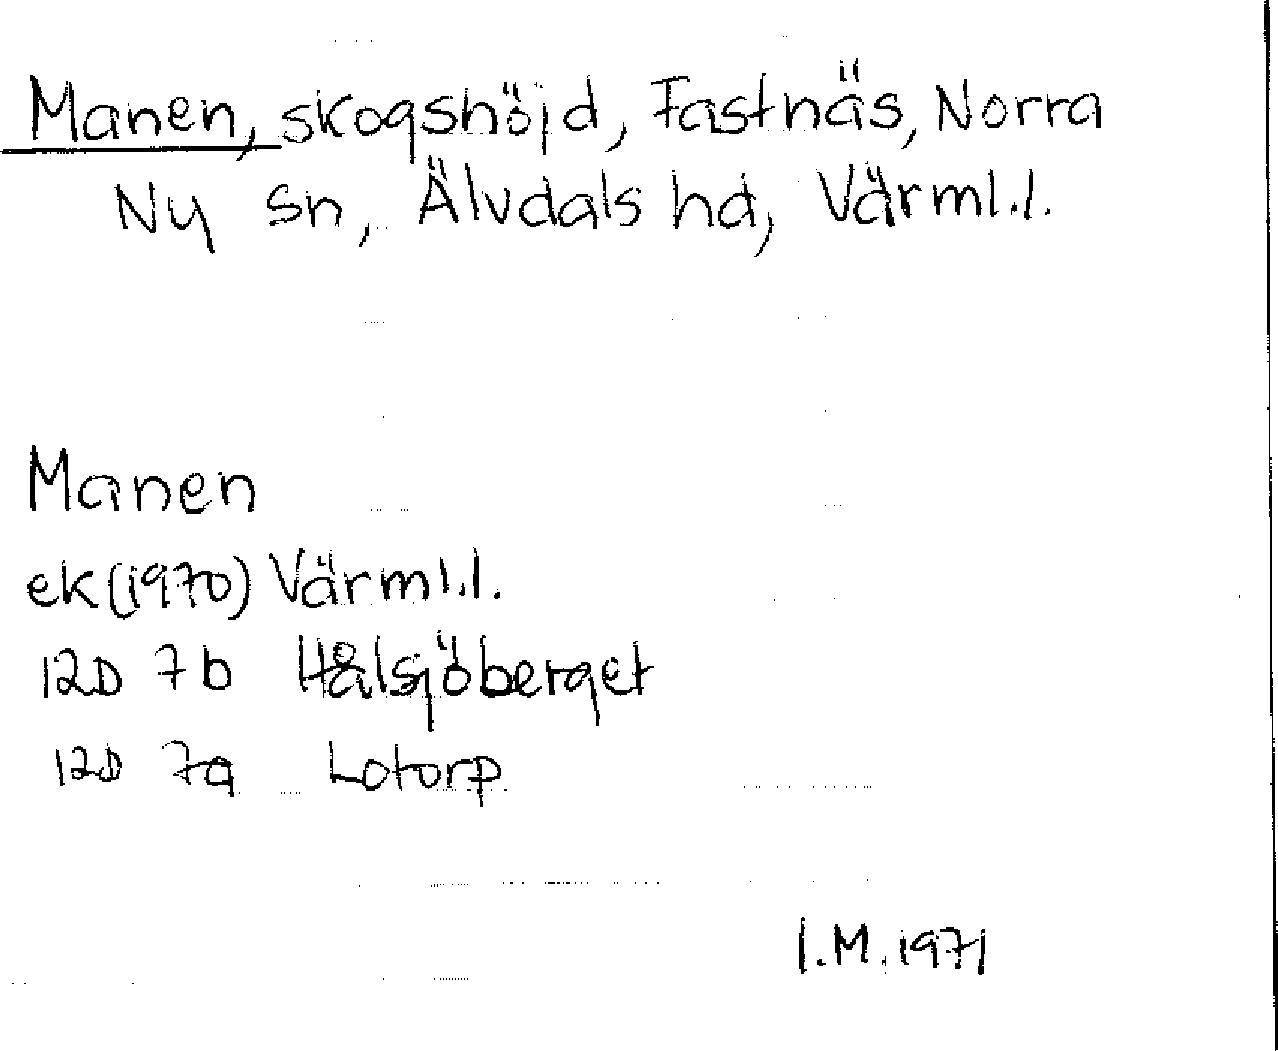 Manen, skogshöjd, Fastnäs, Norra
Ny sn, Älvdals hd, Värml.l.
Manen
ek (1970) Värml.l.
12D 7b Hålsjöberget
12D 7a Lotorp
I.M. 1971